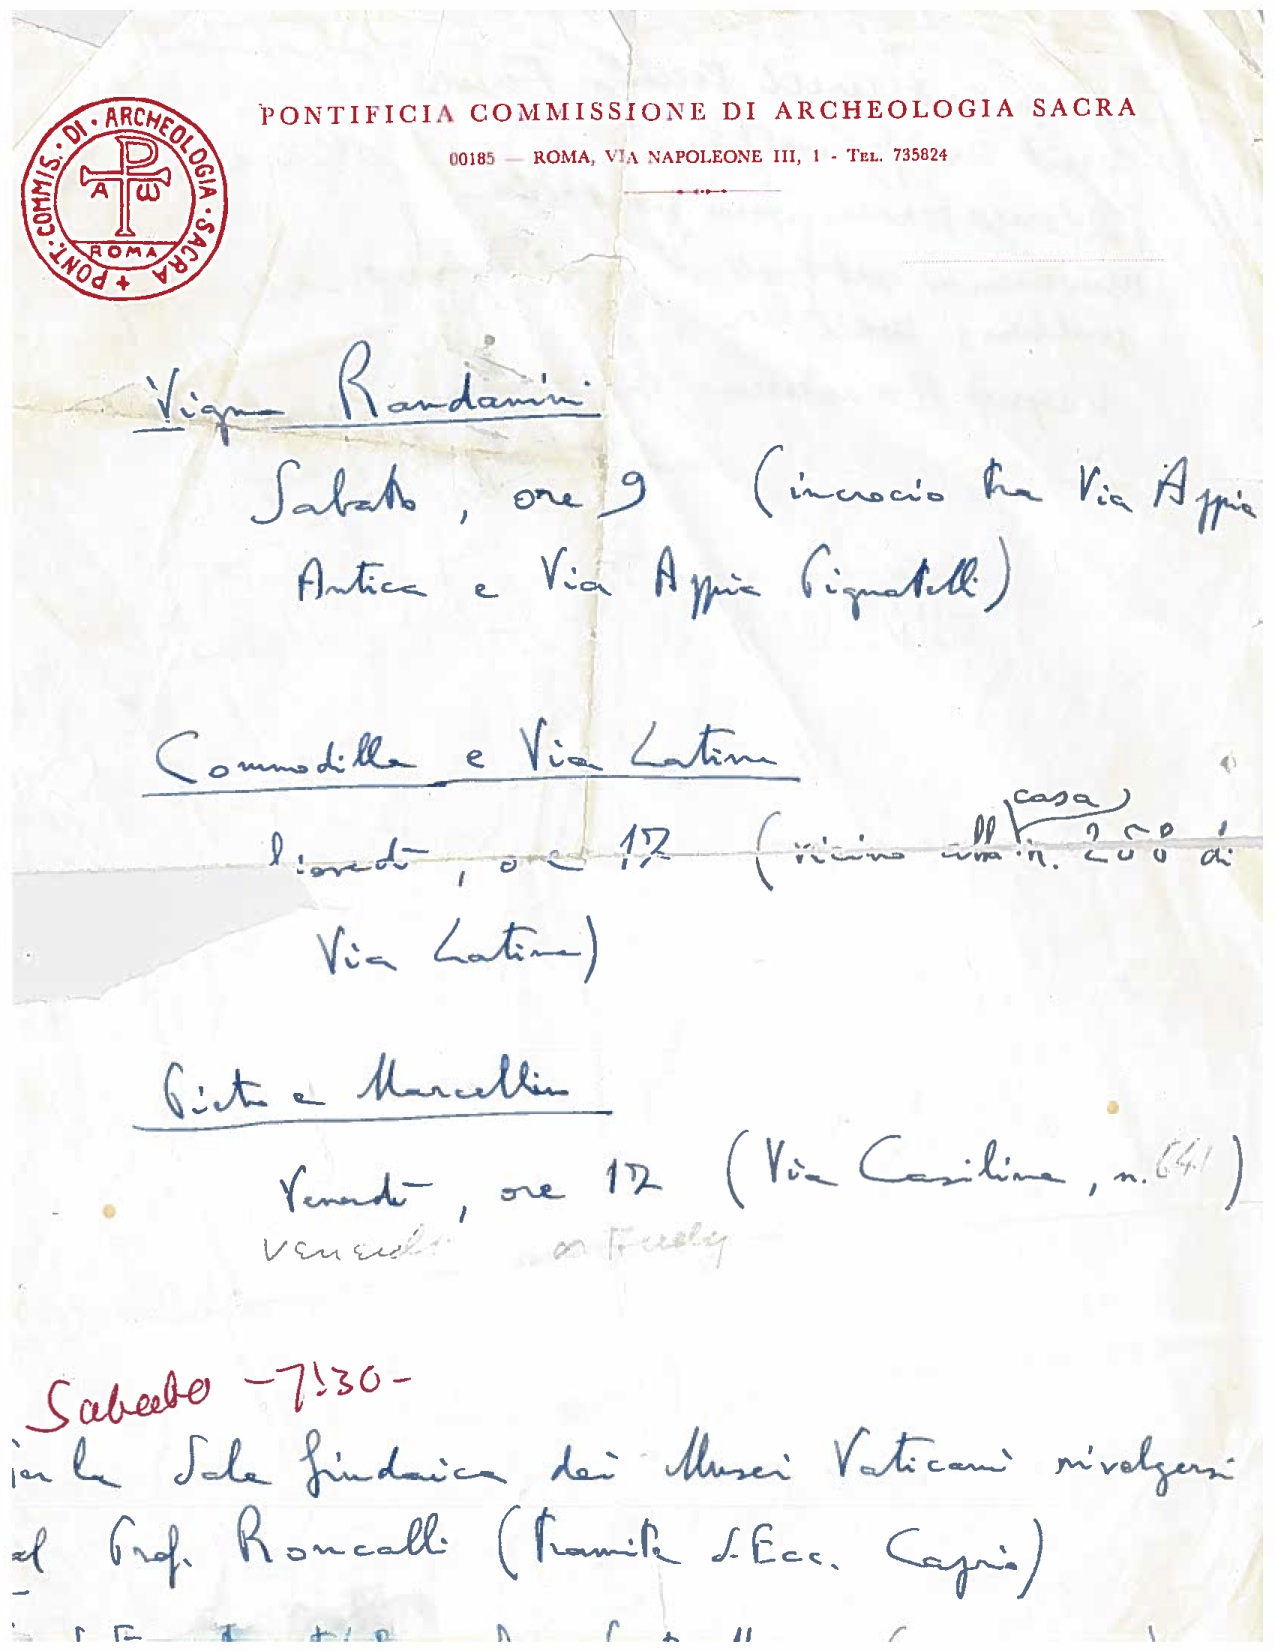 PONTIFICIA COMMISSIONE DI ARCHEOLOGIA SACRA
00185 — ROMA, VIA NAPOLEONE III, 1 - TEL. 735824
PONT. COMMIS. DI ARCHEOLOGIA SACRA
A ω
ROMA
Vigna Randanini
Sabato, ore 9 (incrocio tra Via Appia
Antica e Via Appia Pignatelli)
Commodilla e Via Latina
casa
Giovedì, ore 17 (vicino alla n. 258 di
Via Latina)
Pietro e Marcellino
Venerdì, ore 17 (Via Casilina, n. 641)
Venerdì
Sabato -7:30-
per la Sala Giudaica dei Musei Vaticani rivolgersi
al Prof. Roncalli (tramite S. Ecc. Caprio)